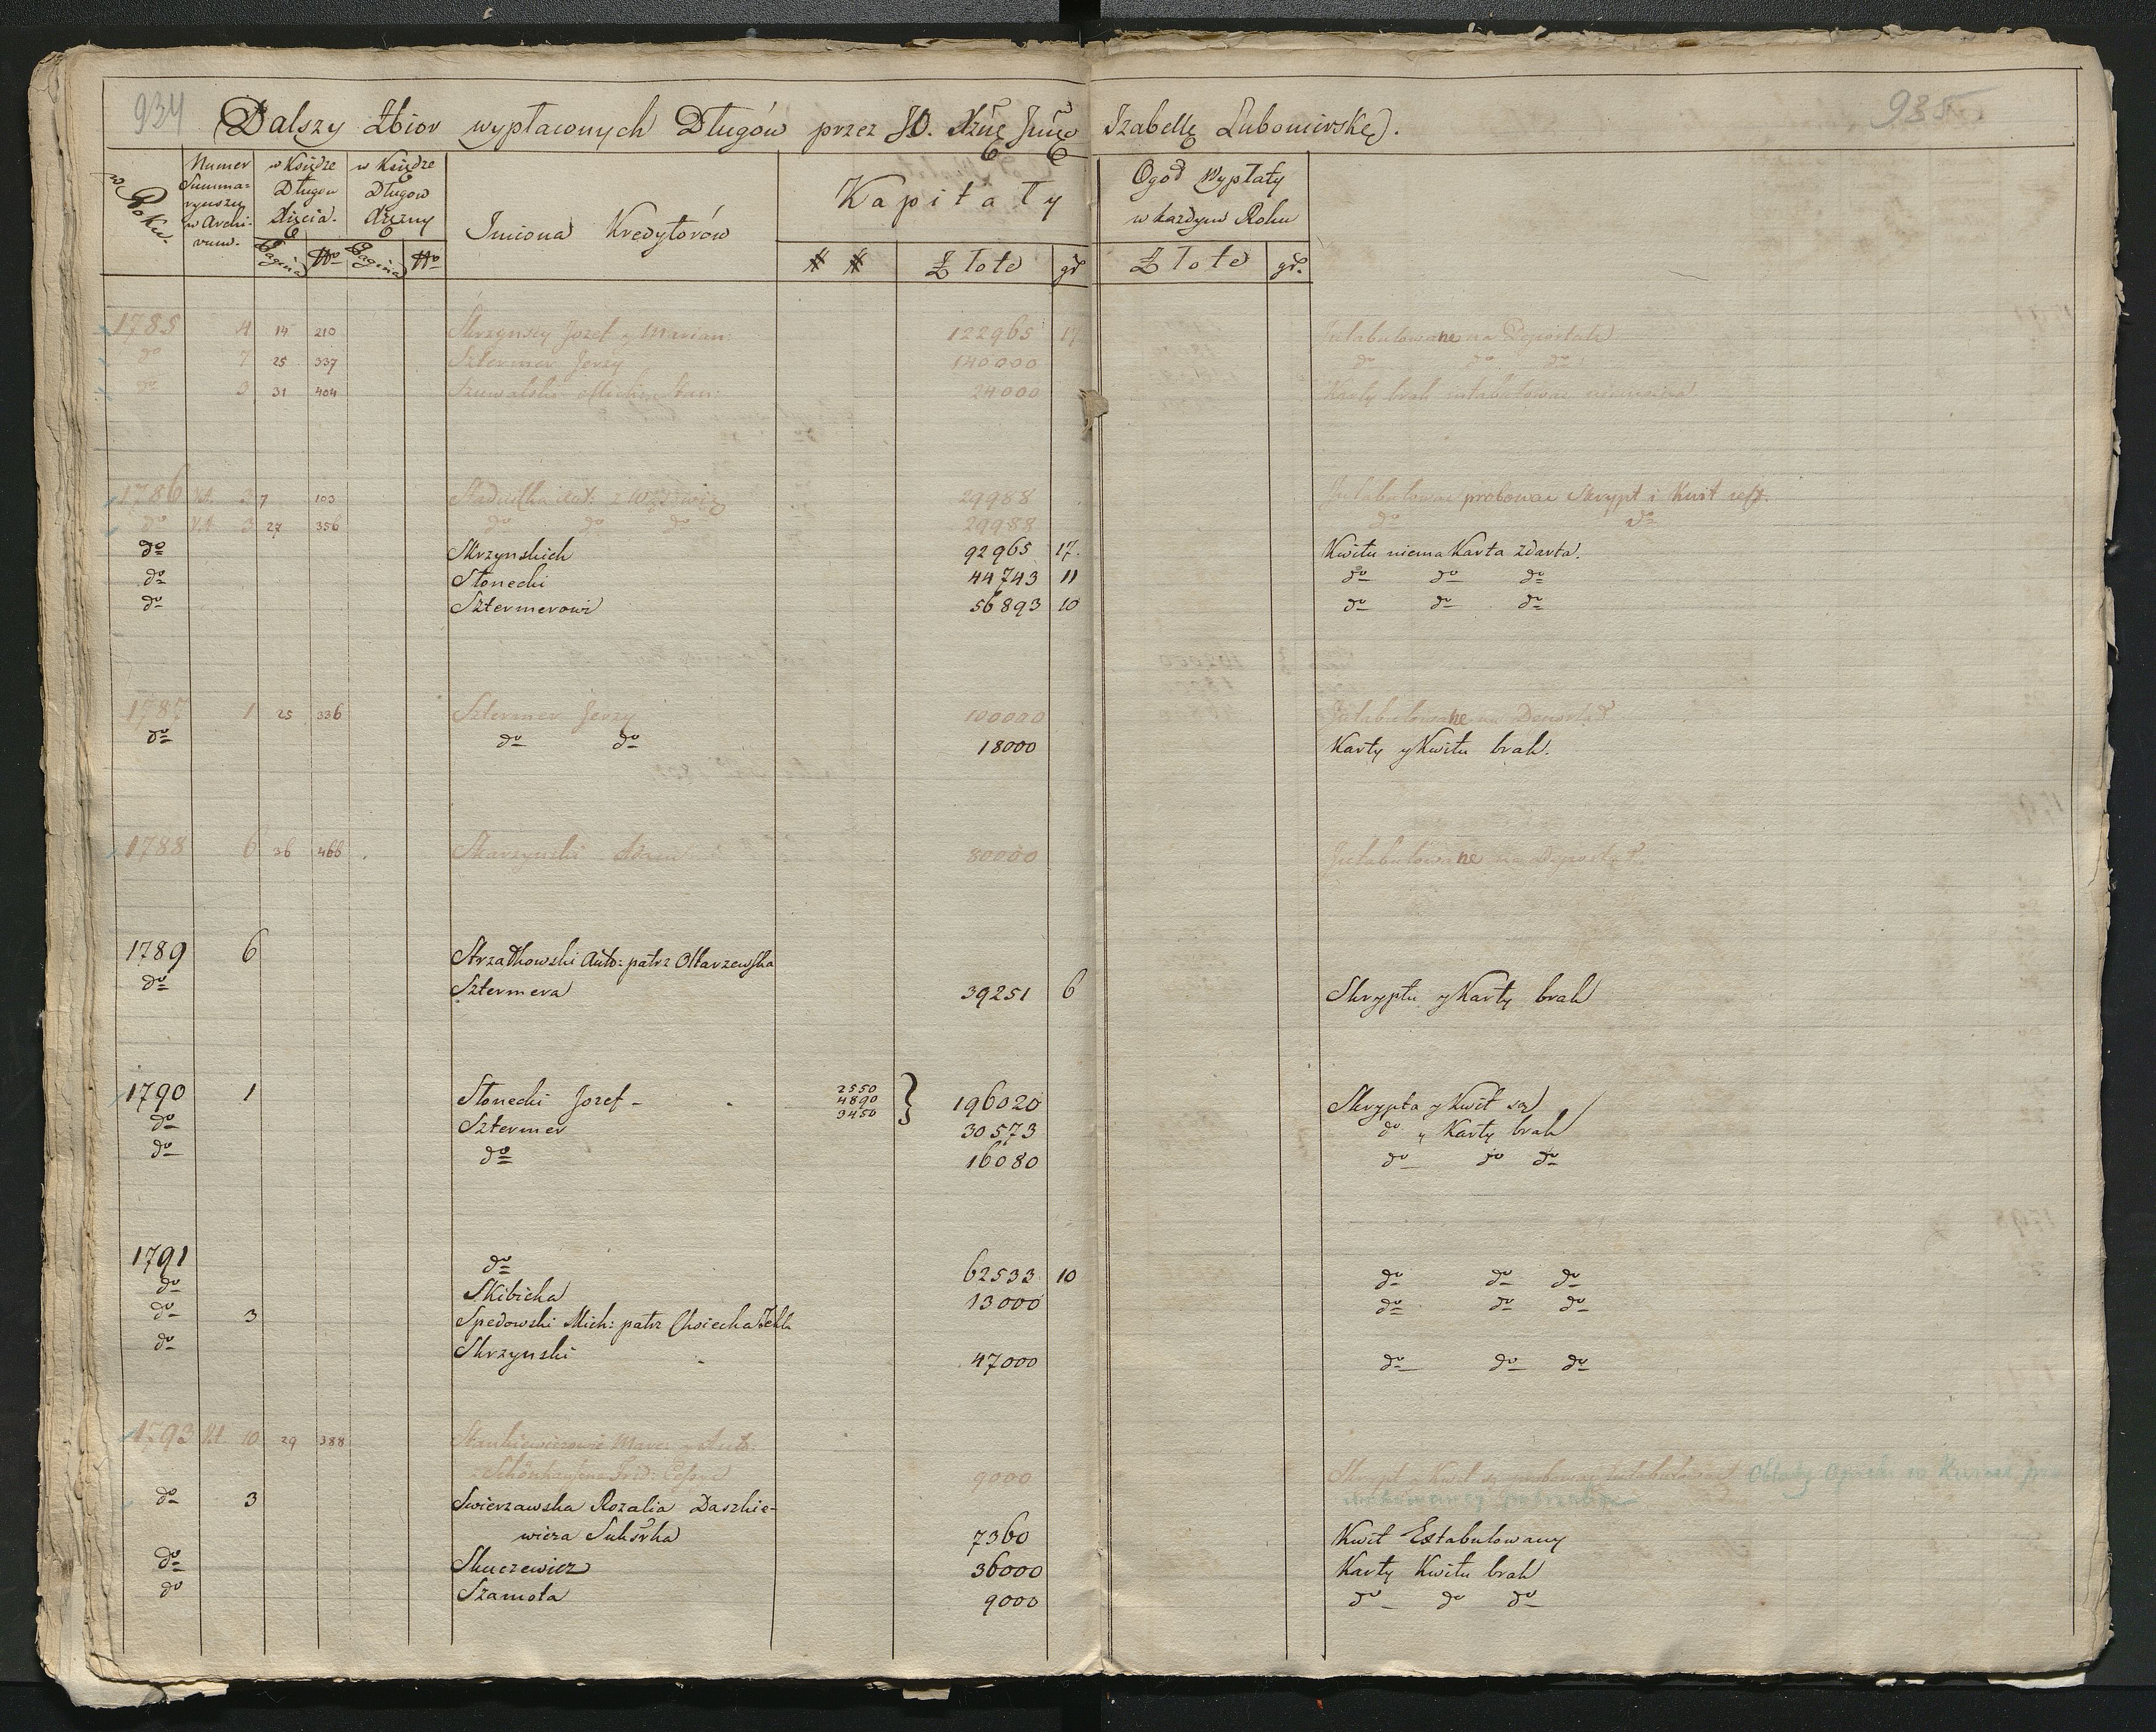 934
935
Dalszy Zbior wypłaconych Długów przez JO. Xżnę Jmć Izabellę Lubomirskę.
w Roku.
Numer Summaryuszu w Archivum.
w Księdze Długow Xięcia.
w Księdze Długow Xiężny
Pagina No Pagina No
Imiona Kredytorów
Kapitały
# # Złote gr
Ogoł Wypłaty w każdym Roku
Złote gr.
1785 4 14 210 Skrzynscy Jozef y Marian 122965 17 Intabulowane na Deportad
do 7 25 337 Sztermer Jerzy 140000 do do do
do 9 31 404 Suwalski Mich. Stan: 24000 Karty brak intabulowac niemożna
1786 3 7 103 29988 Intabulowac probowac Skrypt i Kwit jest.
do 3 27 356 do do do 29988 do do
do Skrzynskich 92965 17. Kwitu niema Karta Zdarta.
do Słonecki 44743 11 do do do
do Sztermerowi 56893 10 do do do
1787 1 25 336 Sztermer Jerzy 100000 Intabulowane na
do do do 18000 Karty y Kwitu brak.
1788 6 36 466 Skarzynski Adam 80000 Intabulowane na
1789 6 Strzałkowski Anto: patrz Ołtarzewska
do Sztermera 39251 6 Skryptu y Karty brak
1790 1 Słonecki Jozef - 2550 4890 3450 } 196020 Skrypta y Kwit są
do Sztermer 30573 do y Karty brak
do do 16080 do do do
1791 do 62533 10 do do do
do Skibicka 13000 do do do
do 3 Spedowski Mich: patrz Choiecka Tekla
do Skrzynski 47000 do do do
1793 10 29 388 Stankiewiczowie Marc: y Anto:
9000 Skrypt y Kwit
do 3 Swierzawska Rozalia Daszkie-
wicza Suk[...]rka 7360 Kwit Extabulowany
do Skuczewicz 36000 Karty Kwitu brak
do Szamota 9000 do do do